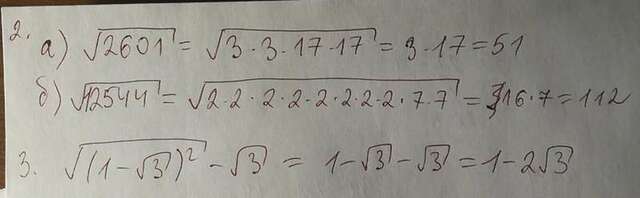 2.
а) √2601 = √3·3·17·17 = 3·17 = 51
б) √12544 = √2·2·2·2·2·2·2·2·7·7 = 16·7 = 112
3. √(1-√3)² - √3 = 1-√3-√3 = 1-2√3